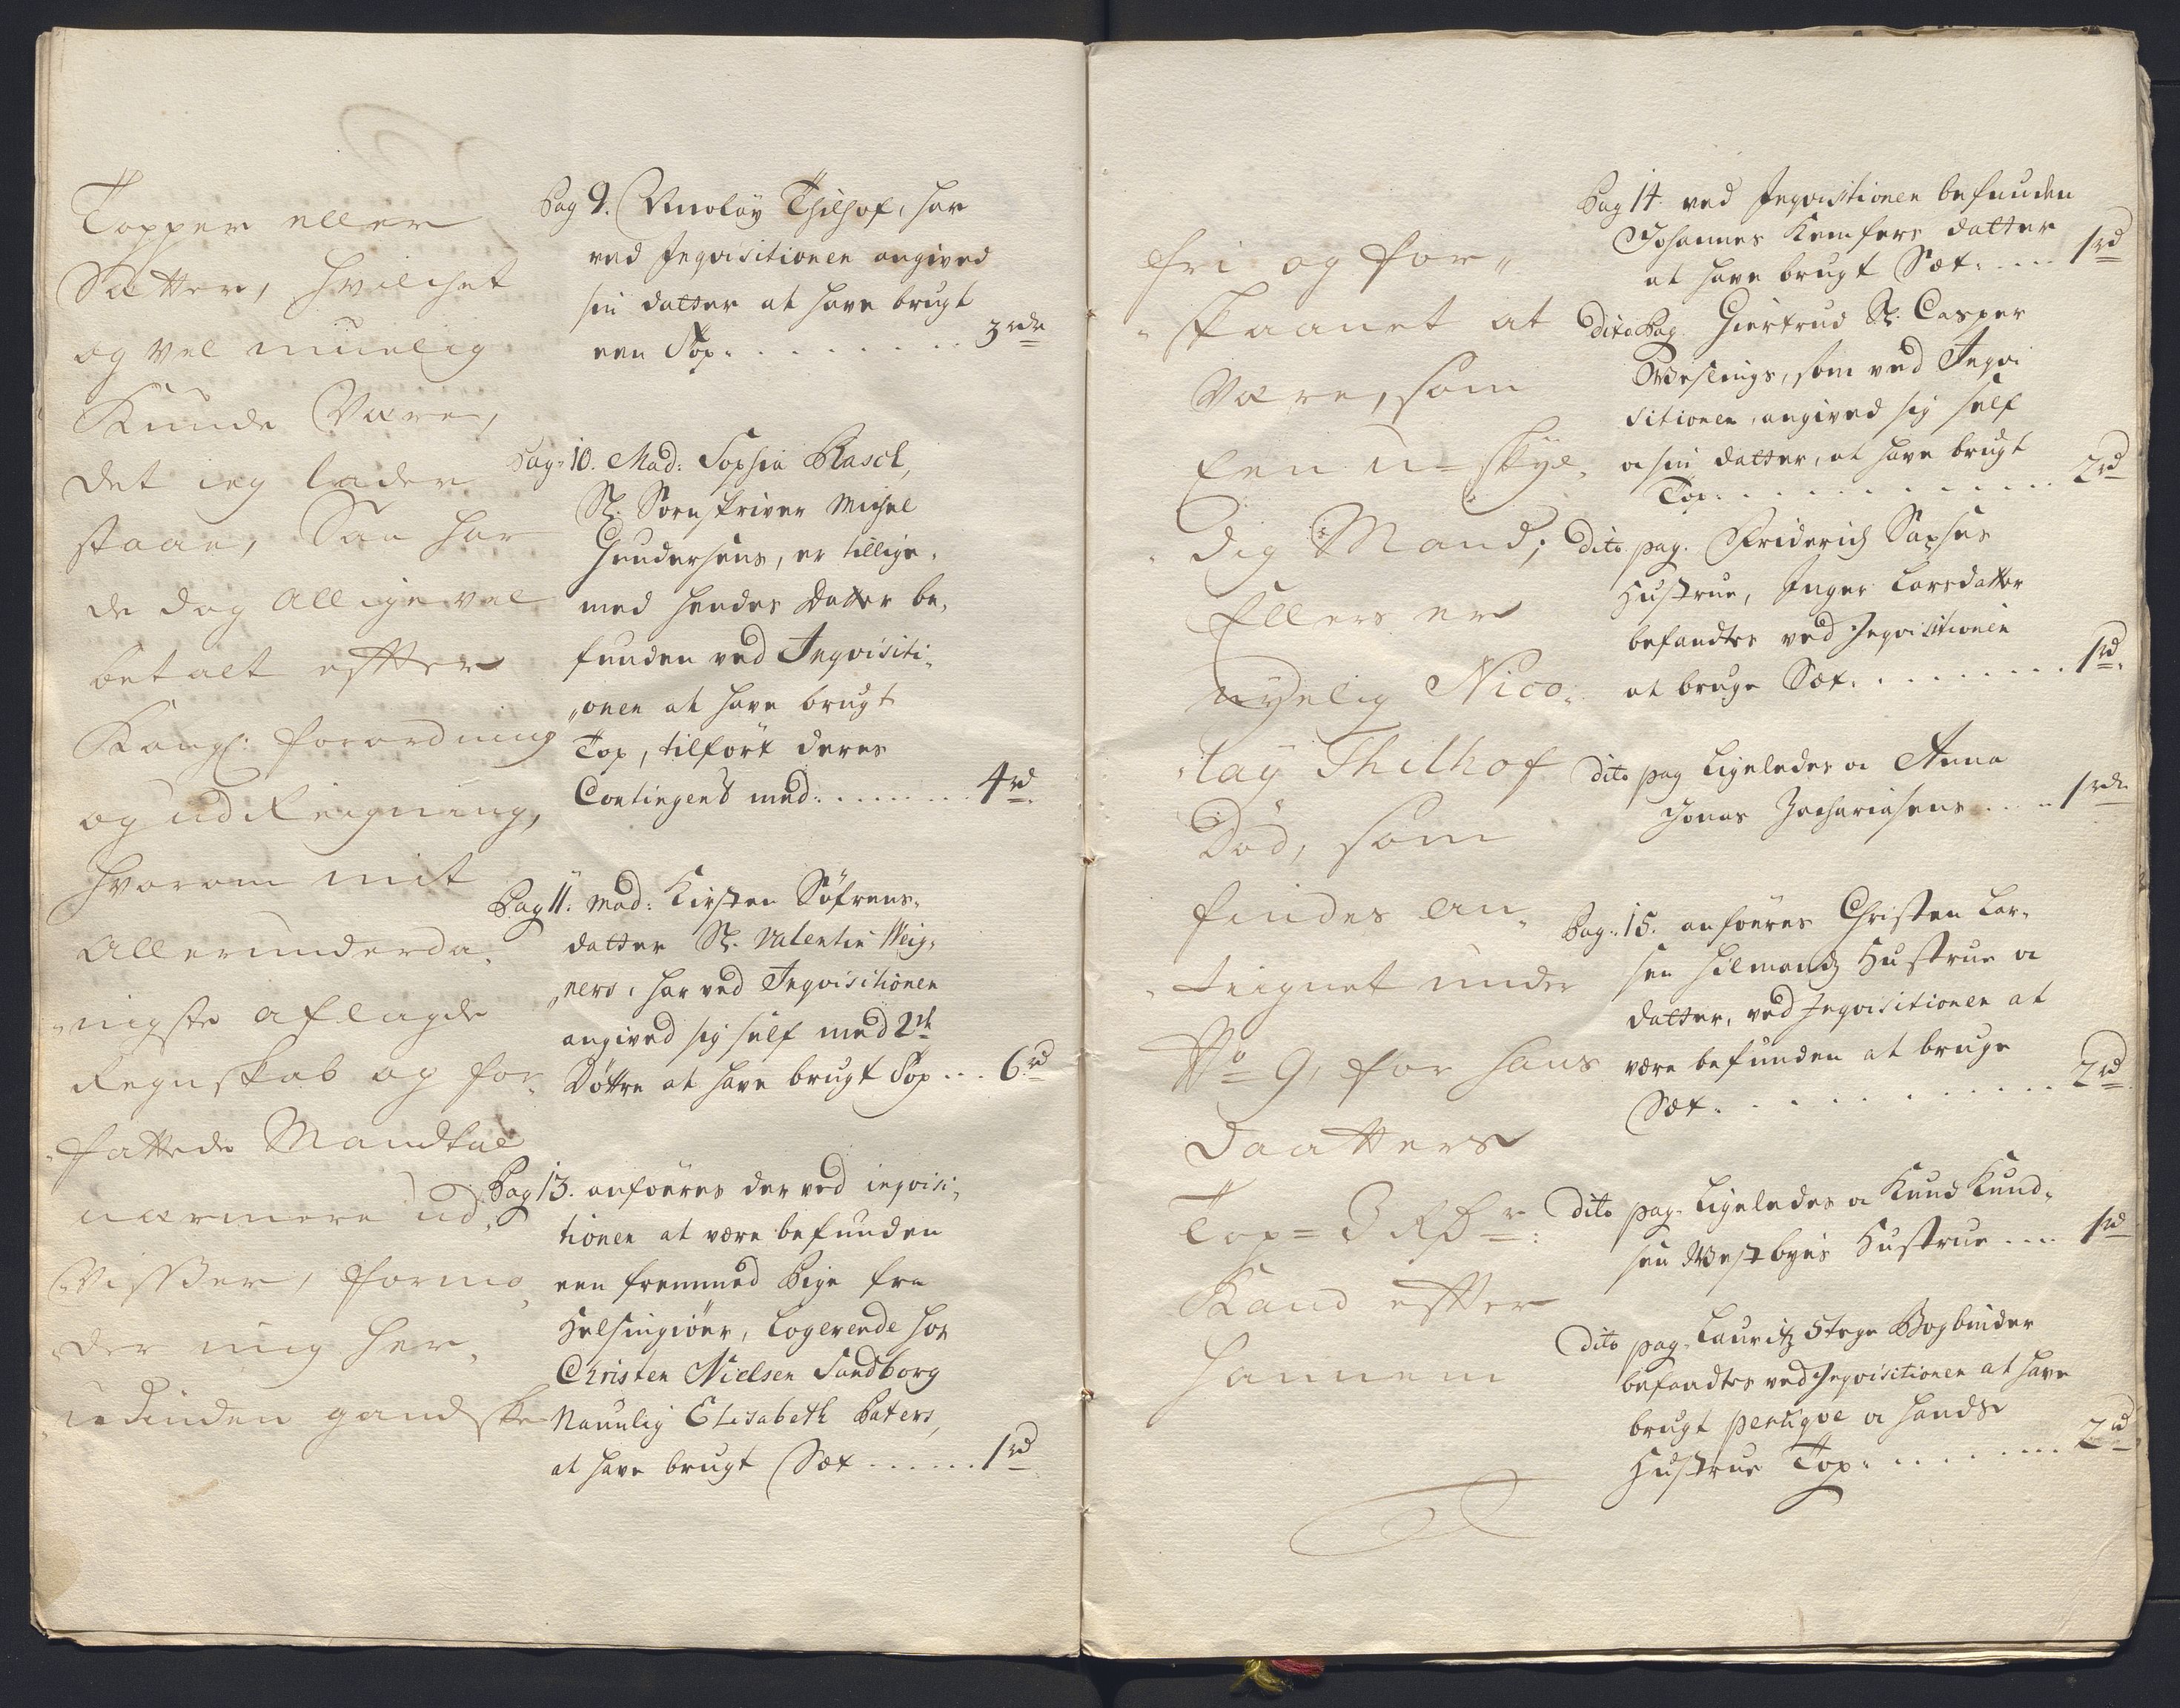 Topper eller
Sætter, hvilchet
og vel muelig
Kunde Være,
det ieg lader
staae, Saa har
de dog alligevel
betalt effter
Kongl: forordning
og udReigning,
hvorom mit
allerunderda„
„nigste aflagde
Regnskab og for„
„fattede Mandtal
nærmere ud„
„Visser, formo„
„der mig her„
udinden gandske
Pag 9. Nicolay Thilhof, har
ved Inqvisitionen angived
sin datter at have brugt
een Top . . . . . . . . 3 rdr
Pag: 10. Mad: Sophia Rasch,
Sl. Sornskriver Michel
Gundersens, er tillige„
med hendes Datter be„
funden ved Inqvisiti„
„onen at have brugt
Top, tilført deres
Contingent med: . . . . . . . 4 rd
Pag 11. Mad: Kirsten Søfrens„
datter Sl. Valentin Weig„
„ners, har ved Inqvisitionen
angived sig self med 2de
Døttre at have brugt Top . . . 6 rd
Pag 13. anføeres der ved inqvisi„
tionen at være befunden
een fremmed Pige fra
Helsingiøer, Logerende hos
Christen Nielsen Sandborg
Naunlig Elisabeth Paters,
at have brugt Sæt . . . . . . 1 rd
fri og for„
„skaanet at
Være, som
Een u=skyl„
„dig Mand;
Ellers er
nyelig Nico„
„lay Thilhof
Død, som
findes an„
„teignet under
No 9, for hans
Daatters
Top = 3 Rdr:
Kand effter
hannem
Pag 14. ved Inqvisitionen befunden
Johannes Kemfers datter
at have brugt Sæt. . . . . 1 rd
dito Pag. Giertrud Sl. Casper
Weslings, som ved Inqvi
sitionen, angived sig self
o sin datter, at have brugt
Top. . . . . . . . . . . . . 2 rd
dito pag. Friderich Saxses
Hustrue, Inger Larsdatter
befandtes ved Inqvisitionen
at bruge Sæt. . . . . . . . . 1 rd.
dito pag Ligeledes o Anna
Jonas Zachariasens . . . 1 rdr
Pag: 15. anføeres Christen Lar„
sen Hilmands Hustrue o
datter, ved Inqvisitionen at
være befunden at bruge
Sæt. . . . . . . . . . . 2 rd
dito pag. Ligeledes o Knud Knud„
sen Westbyes Hustrue . . . . 1 rd
dito pag. Lauritz Stege Bogbinder
befandtes ved Inqvisitionen at have
brugt peruqve o hands
Hustrue Top. . . . . . . . . 2 rd